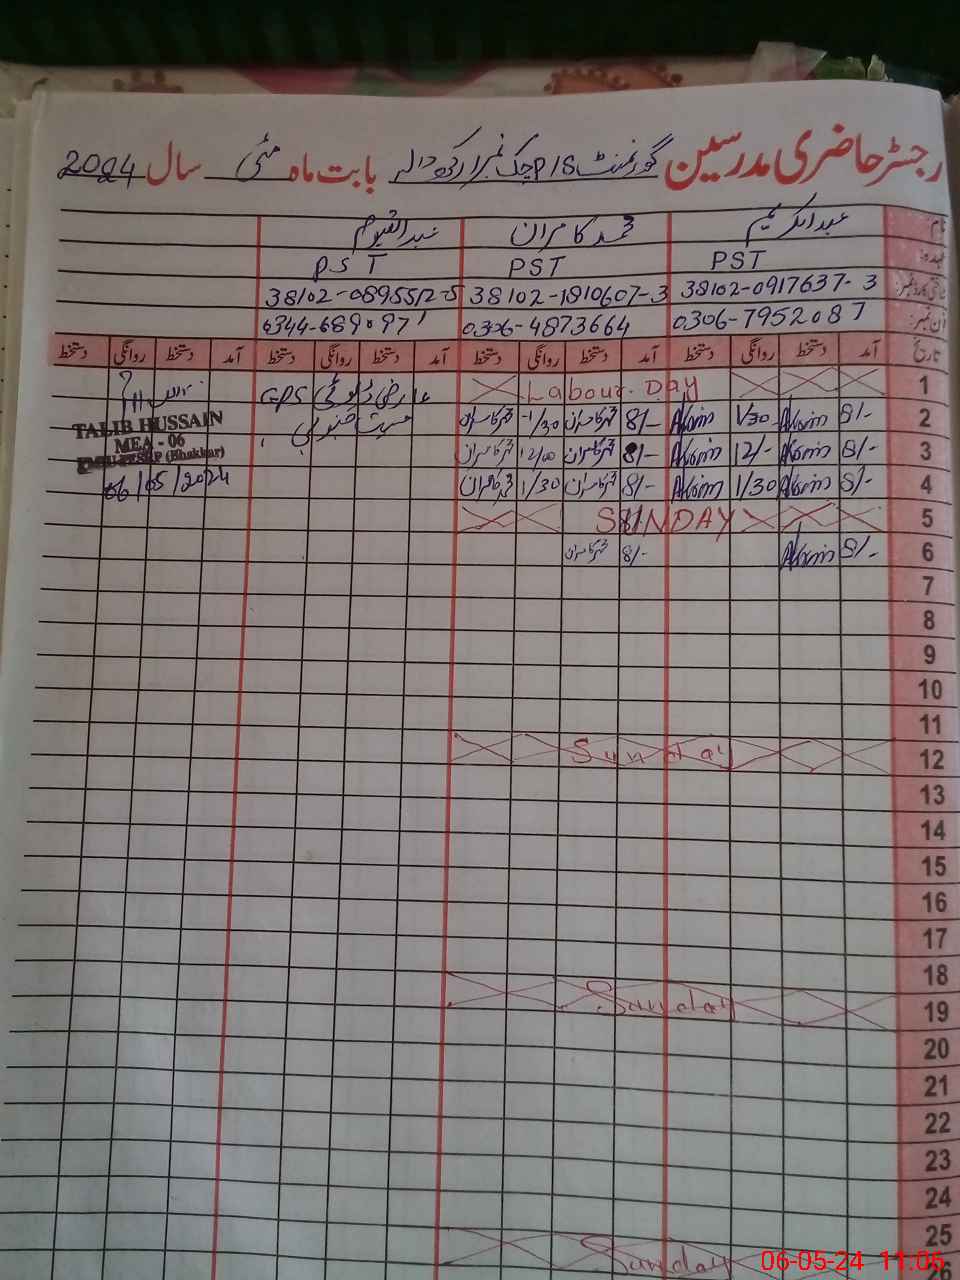 رجسٹر حاضری مدرسین گورنمنٹ P/S چک نمبر بابت ماہ مئی سال 2024
نام عبدالکریم محمد کامران عبدالقیوم
عہدہ PST PST PST
38102-0917637-3 38102-1810607-3 38102-0895512-5
فون نمبر 0306-7952087 0306-4873664 0344-689097
تاریخ آمد دستخط روانگی دستخط آمد دستخط روانگی دستخط آمد دستخط روانگی دستخط آمد دستخط روانگی دستخط
1 Labour Day عارضی ڈیوٹی GPS
2 8/- Akrim 1/30 Akrim 8/- محمد کامران 1/30 محمد کامران جنوبی
TALIB HUSSAIN
MEA - 06
(Bhakkar)
3 8/- Akrim 12/- Akrim 8/- محمد کامران 12/00 محمد کامران
4 8/- Akrim 1/30 Akrim 8/- محمد کامران 1/30 محمد کامران 06/05/2024
5 SUNDAY
6 8/- Akrim 8/- محمد کامران
7
8
9
10
11
12 Sunday
13
14
15
16
17
18
19 Sunday
20
21
22
23
24
25
26 Sunday
06-05-24 11:06